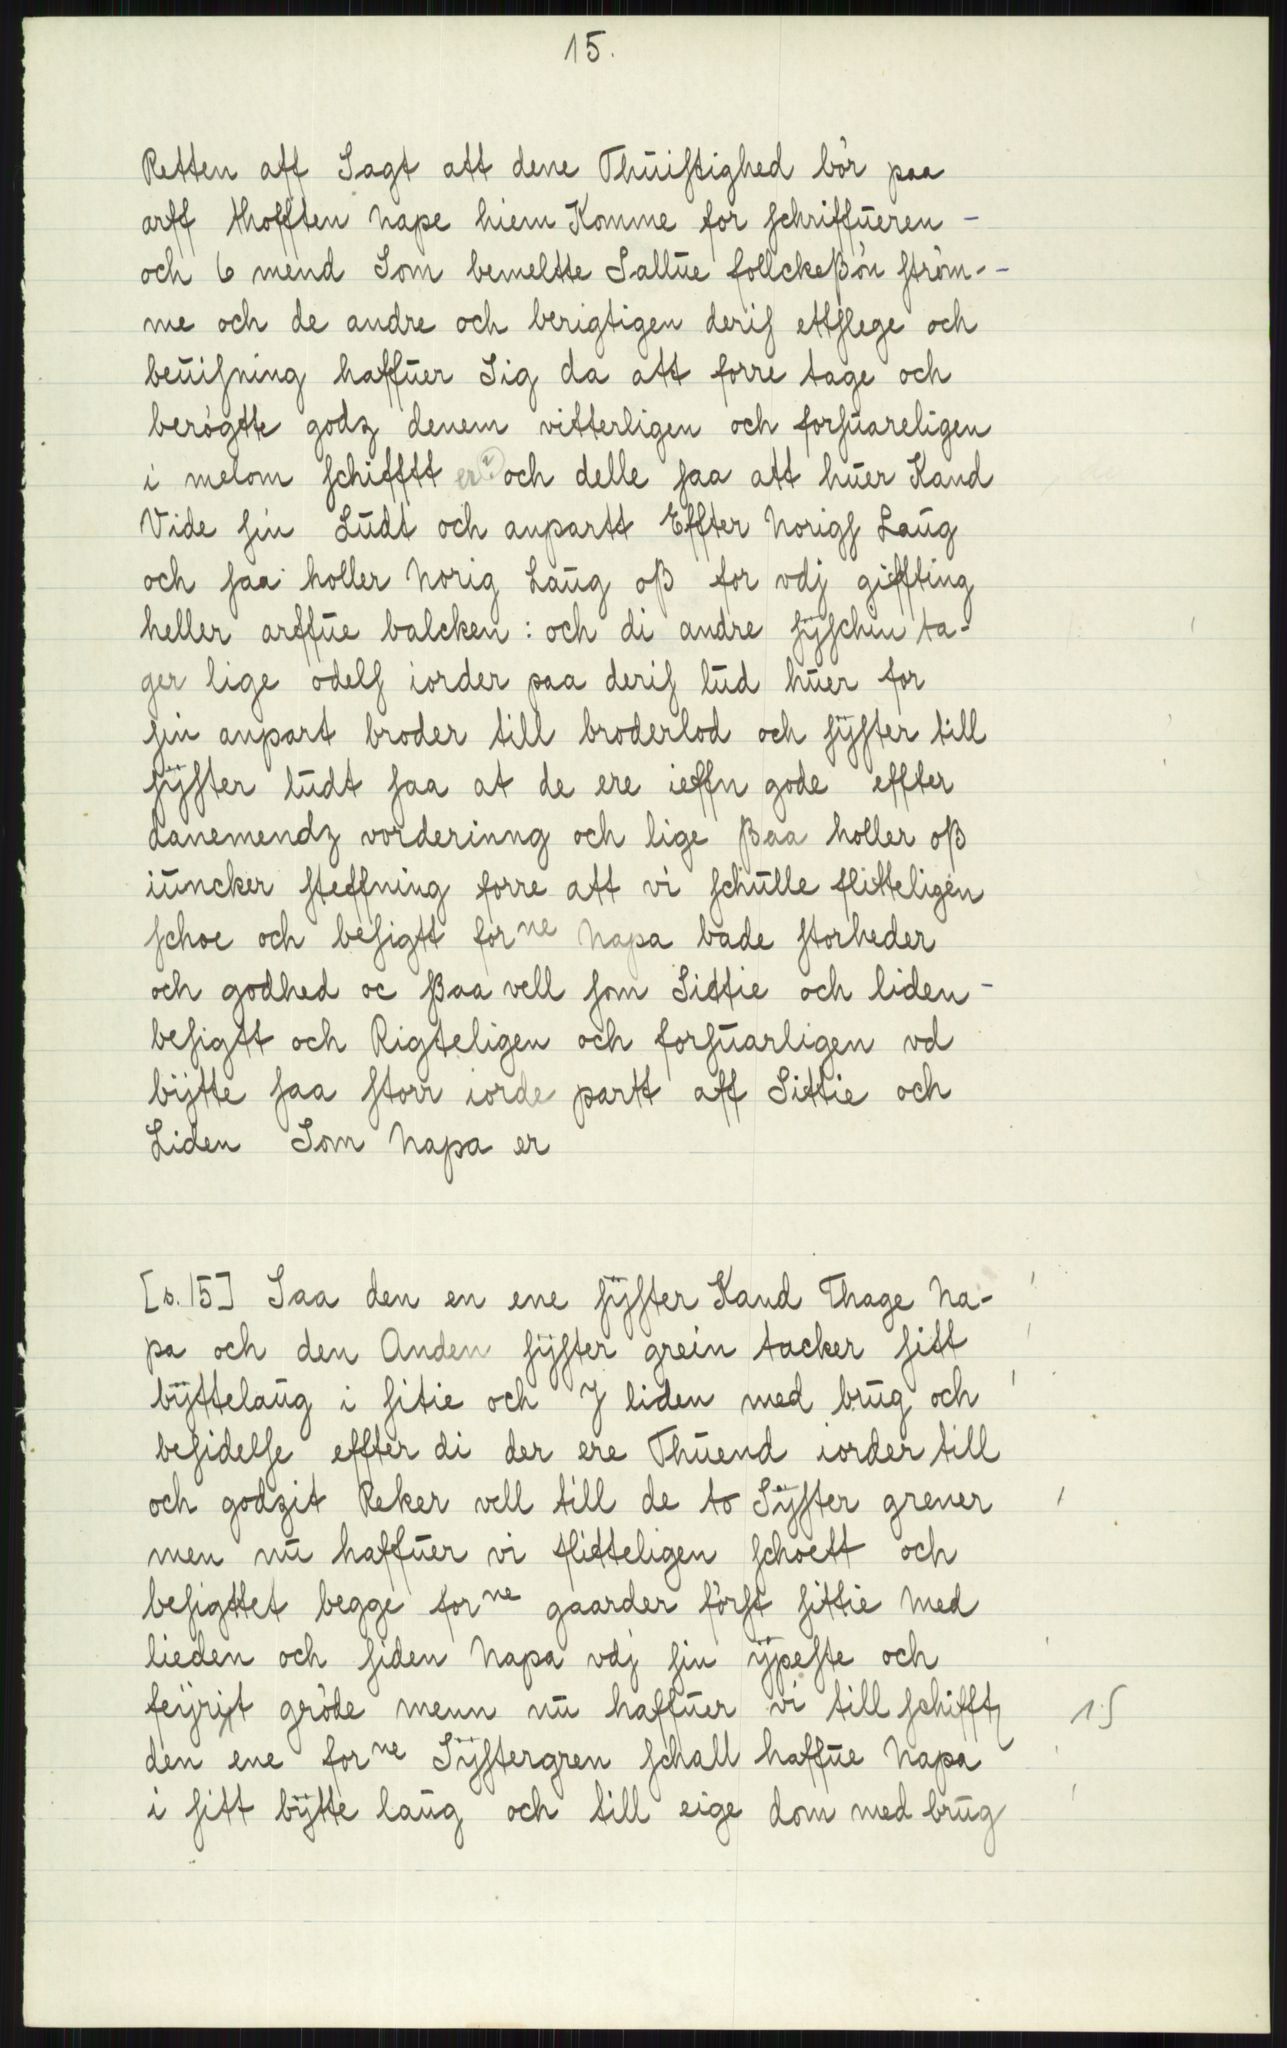 15.
Retten aff Sagt att dene Thuistighed bör paa
arff thofften Nape hiem Komme for schriffueren -
och 6 mend Som bemeltte Sallue follckeßön ström-
me och de andre och berigtigen deris ettslege och
beuisning haffuer Sig da att forre tage och
berögtte godz denem vitterligen och forsuareligen
i melom schifftt er och delle saa att huer Kand
Vide sin Ludt och anpartt Effter Norigs Laug
och saa holler Norig Laug oß for vdj giffting
heller arffue balcken : och di andre sÿschin ta-
ger lige odels iorder paa deris lud huer for
sin anpart broder till broderlod och sÿster till
sÿster ludt saa at de ere ieffn gode effter
danemendz vorderinng och lige ßaa holler oß
iuncker steffning forre att vi schulle flitteligen
schoe och besigtt forne Napa bade storheder
och godhed oc ßaa vell som Sittie och liden -
besigtt och Rigteligen och forsuarligen vd
bÿtte saa storr iorde partt aff Sittie och
Liden Som Napa er
[s. 15] Saa den en ene sÿster Kand Thage Na-
pa och den Anden sÿster grein tacker sitt
bÿttelaug i sitie och J liden med brug och
besidelse effter di der ere Thuend iorder till
och godzit Reker vell till de to Sÿster grener
men nu haffuer vi flitteligen schoett och
besigttet begge forne gaarder först sittie Med
lieden och siden Napa vdj sin ÿpeste och
feÿrist gröde menn nu haffuer vi till schifftz
15
den ene forne Sÿstergren schall haffue Napa
i sitt bÿtte laug och till eige dom med brug